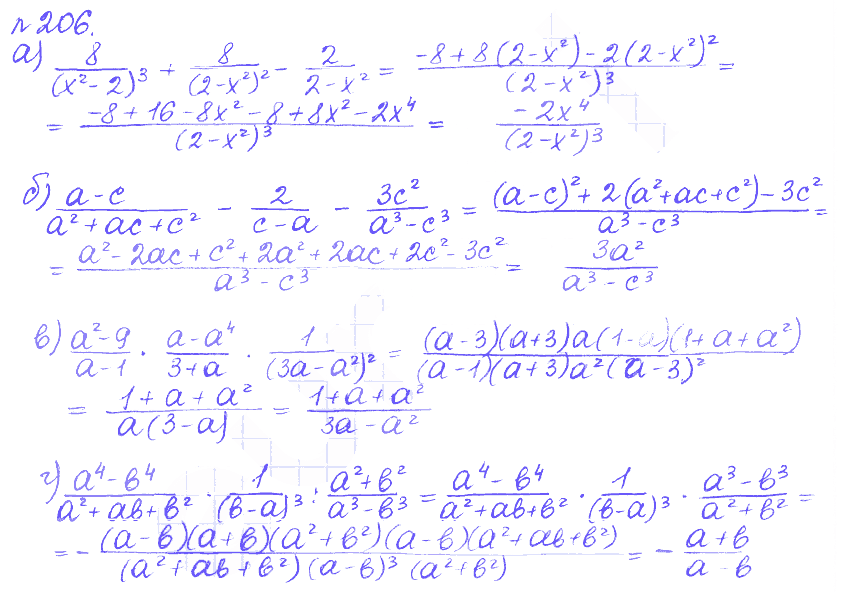 № 206.
а) 8/(x²-2)³ + 8/(2-x²)² - 2/(2-x²) = (-8+8(2-x²)-2(2-x²)²)/(2-x²)³ =
= (-8+16-8x²-8+8x²-2x⁴)/(2-x²)³ = (-2x⁴)/(2-x²)³
б) (a-c)/(a²+ac+c²) - 2/(c-a) - 3c²/(a³-c³) = ((a-c)²+2(a²+ac+c²)-3c²)/(a³-c³) =
= (a²-2ac+c²+2a²+2ac+2c²-3c²)/(a³-c³) = 3a²/(a³-c³)
в) (a²-9)/(a-1) · (a-a⁴)/(3+a) · 1/(3a-a²)² = ((a-3)(a+3)a(1-a)(1+a+a²))/((a-1)(a+3)a²(a-3)²)
= (1+a+a²)/(a(3-a)) = (1+a+a²)/(3a-a²)
г) (a⁴-b⁴)/(a²+ab+b²) · 1/(b-a)³ : (a²+b²)/(a³-b³) = (a⁴-b⁴)/(a²+ab+b²) · 1/(b-a)³ · (a³-b³)/(a²+b²) =
= - ((a-b)(a+b)(a²+b²)(a-b)(a²+ab+b²))/((a²+ab+b²)(a-b)³(a²+b²)) = - (a+b)/(a-b)